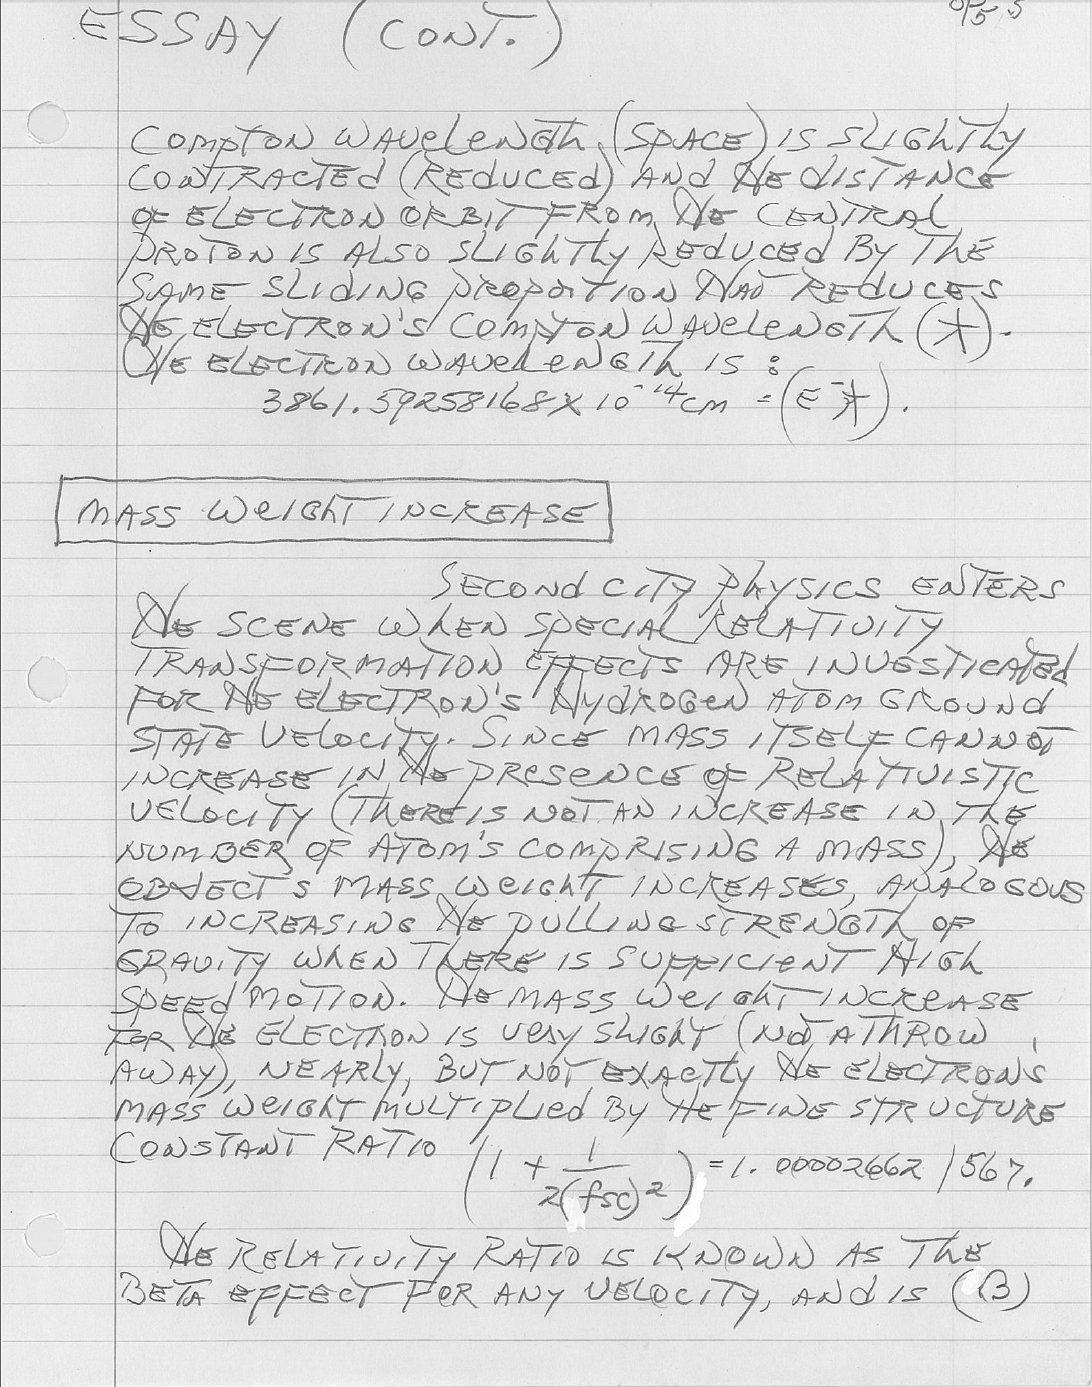 ESSAY (CONT.)
COMPTON WAVELENGTH (SPACE) IS SLIGHTLY
CONTRACTED (REDUCED) AND THE DISTANCE
OF ELECTRON ORBIT FROM THE CENTRAL
PROTON IS ALSO SLIGHTLY REDUCED BY THE
SAME SLIDING PROPORTION THAT REDUCES
THE ELECTRON'S COMPTON WAVELENGTH (ƛ).
THE ELECTRON WAVELENGTH IS:
3861.59258168 X 10⁻¹⁴ cm = (E⁻ƛ).
MASS WEIGHT INCREASE
SECOND CITY PHYSICS ENTERS
THE SCENE WHEN SPECIAL RELATIVITY
TRANSFORMATION EFFECTS ARE INVESTIGATED
FOR THE ELECTRON'S HYDROGEN ATOM GROUND
STATE VELOCITY. SINCE MASS ITSELF CANNOT
INCREASE IN THE PRESENCE OF RELATIVISTIC
VELOCITY (THERE IS NOT AN INCREASE IN THE
NUMBER OF ATOM'S COMPRISING A MASS), THE
OBJECT'S MASS WEIGHT INCREASES, ANALOGOUS
TO INCREASING THE PULLING STRENGTH OF
GRAVITY WHEN THERE IS SUFFICIENT HIGH
SPEED MOTION. THE MASS WEIGHT INCREASE
FOR THE ELECTRON IS VERY SLIGHT (NOT A THROW
AWAY), NEARLY, BUT NOT EXACTLY THE ELECTRON'S
MASS WEIGHT MULTIPLIED BY THE FINE STRUCTURE
CONSTANT RATIO (1 + 1/2(fsc)²) = 1.00002662 1567.
THE RELATIVITY RATIO IS KNOWN AS THE
BETA EFFECT FOR ANY VELOCITY, AND IS (B)